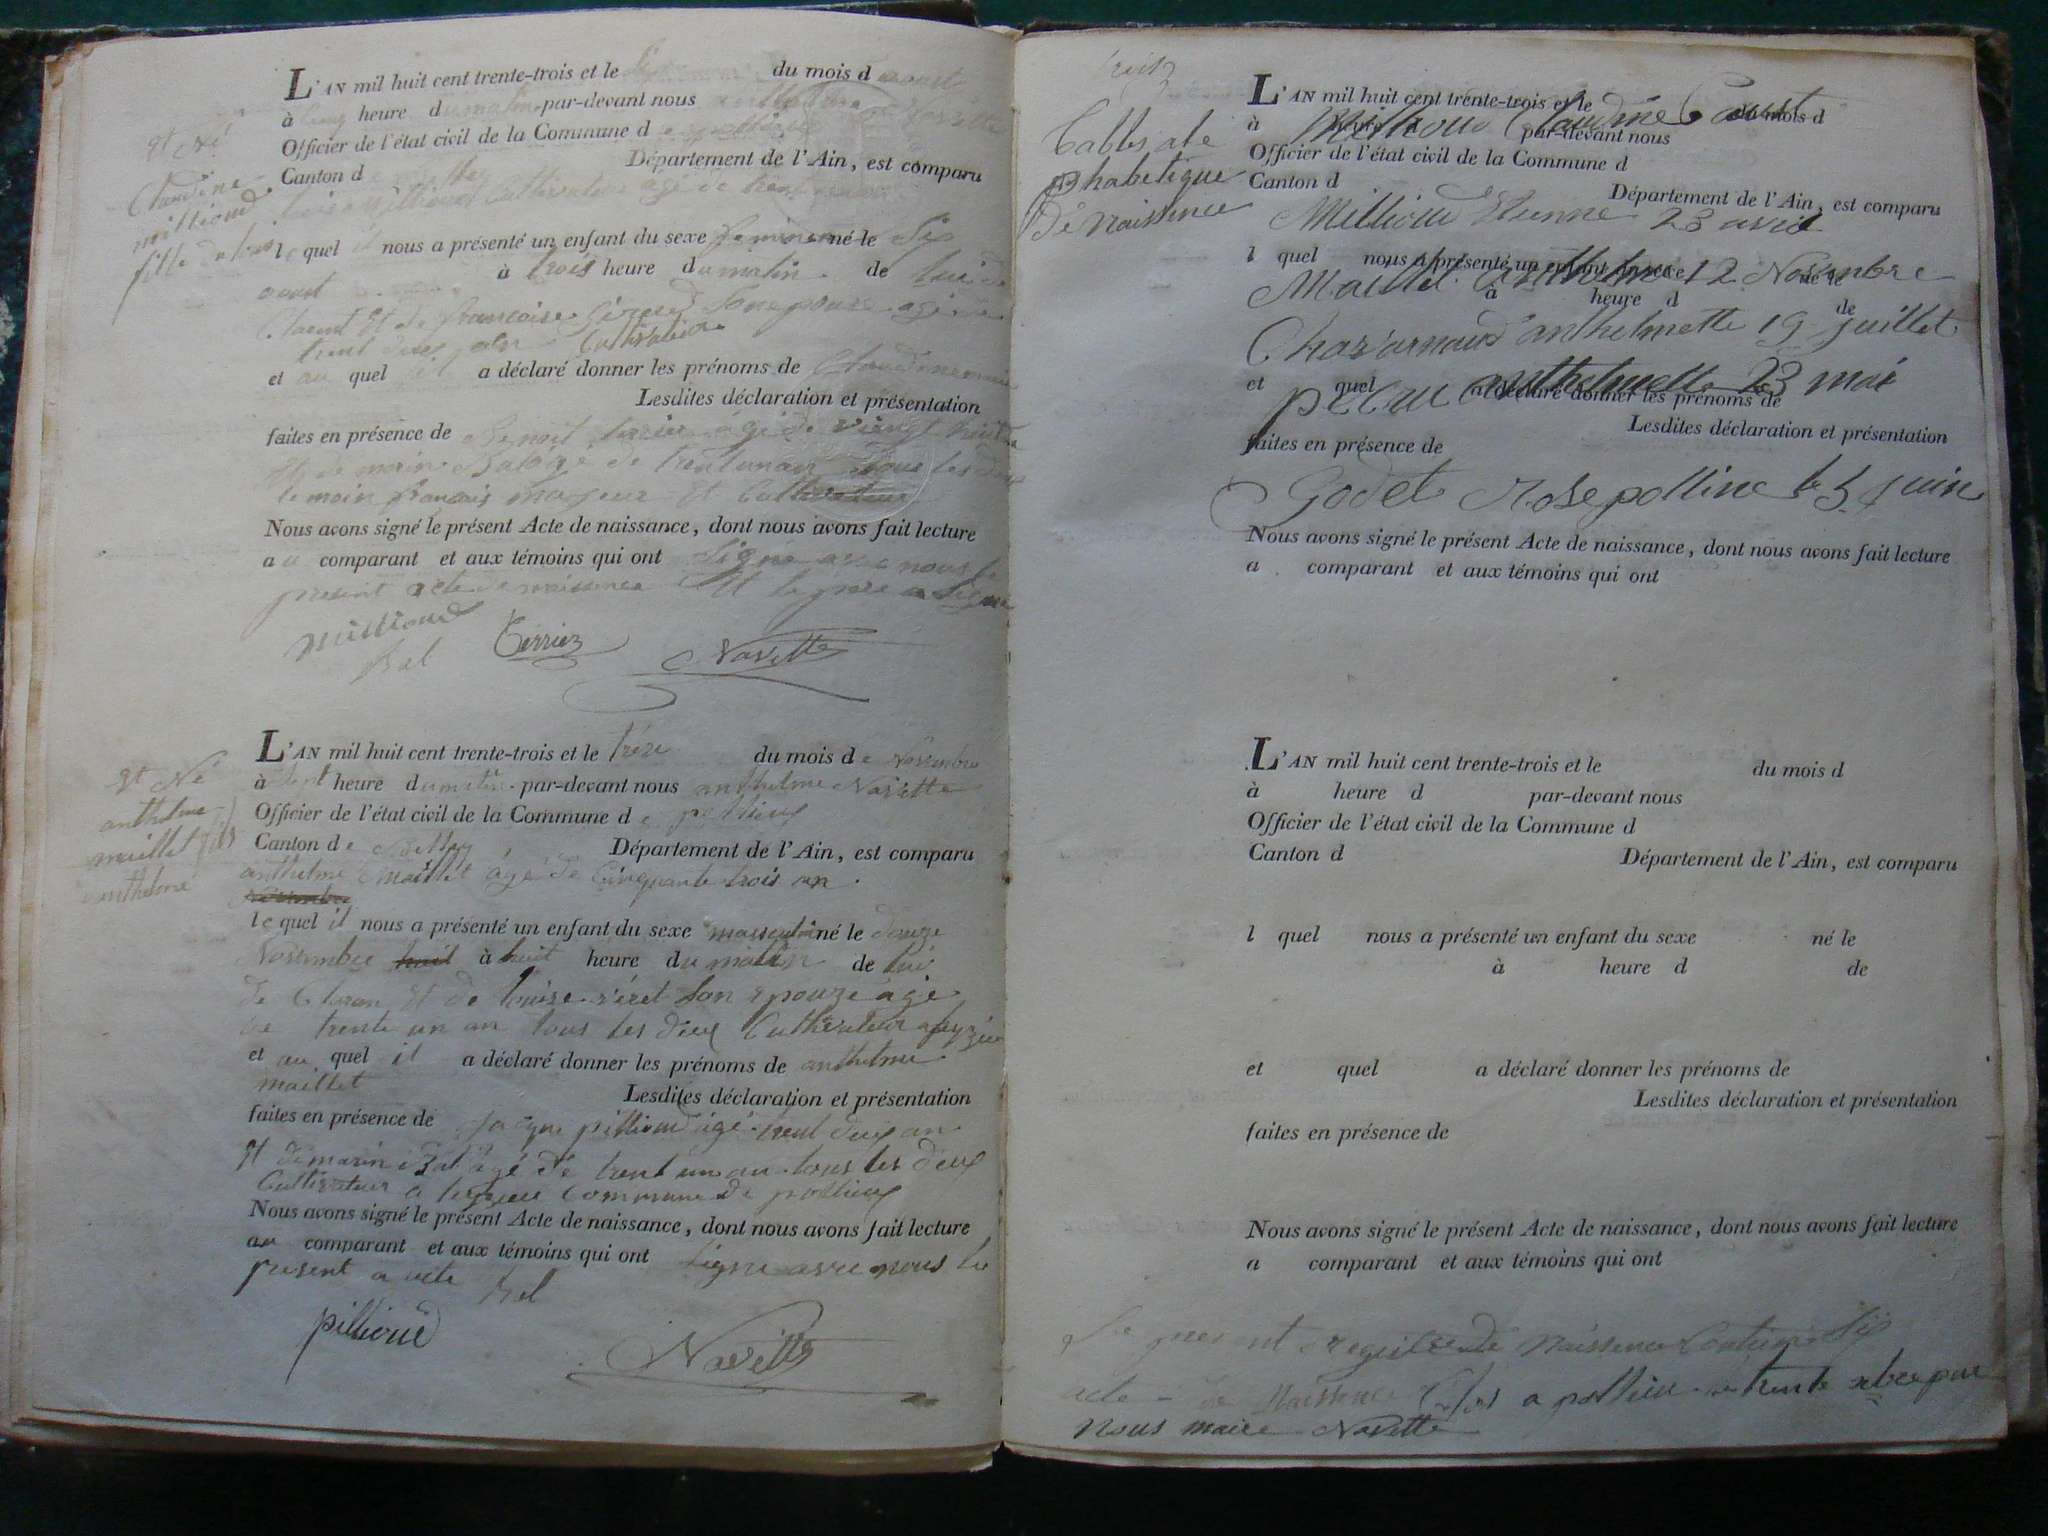 L'AN mil huit cent trente-trois et le du mois d aoust
à cinq heure du matin par-devant nous anthelme Navette
Officier de l'état civil de la Commune de pollieu
Canton d Département de l'Ain, est comparu
Millioud Cultivateur agé de trent
le quel il nous a présenté un enfant du sexe feminin né le six
aoust à trois heure du matin de lui de
et de francoise son epouse agée de
trent deux an Cultivatrice
et au quel il a déclaré donner les prénoms de Claudine
Lesdites déclaration et présentation
faites en présence de Benoit agé de vingt huit
Et de marin Bal agé de trent un an tous les deux
temoin francais majeur Et Cultivateur
Nous avons signé le présent Acte de naissance, dont nous avons fait lecture
au comparant et aux témoins qui ont signé avec nous le
present acte de naissence Et le pere a signé
Millioud
Bal Terrier Navette
et Né
Claudine
millioud
fille de
L'AN mil huit cent trente-trois et le treze du mois de Novembre
à sept heure du matin par-devant nous anthelme Navette
Officier de l'état civil de la Commune de pollieu
Canton de Département de l'Ain, est comparu
anthelme maillet agé de Cinquante trois an
Novembre
le quel il nous a présenté un enfant du sexe masculin né le douze
Novembre huit à huit heure du matin de lui
de et de louise son epouze agé
de trente un an tous les deux Cultivateur
et au quel il a déclaré donner les prénoms de anthelme
maillet Lesdites déclaration et présentation
faites en présence de pillioud agé trent deux an
Et de marin Bal agé de trent un an tous les deux
Cultivateur a commune de pollieu
Nous avons signé le présent Acte de naissance, dont nous avons fait lecture
au comparant et aux témoins qui ont signe avec nous le
present acte Bal
pillioud
Navette
et Né
anthelme
maillet fils
anthelme
Table al
phabetique
de Naissence
L'AN mil huit cent trente-trois et le du mois d
Millioud Claudine 6 aoust
à heure d par-devant nous
Officier de l'état civil de la Commune d
Canton d Département de l'Ain, est comparu
Millioud Etienne 23 avril
l quel nous a présenté un enfant du sexe né le
Maillet anthelme 12 Novembre
à heure d de
Charvarnaud anthelmette 19 juillet
et quel a déclaré donner les prénoms de
anthelmette 23 mai
Lesdites déclaration et présentation
faites en présence de
Godet Rose polline le 5 juin
Nous avons signé le présent Acte de naissance, dont nous avons fait lecture
a comparant et aux témoins qui ont
L'AN mil huit cent trente-trois et le du mois d
à heure d par-devant nous
Officier de l'état civil de la Commune d
Canton d Département de l'Ain, est comparu
l quel nous a présenté un enfant du sexe né le
à heure d de
et quel a déclaré donner les prénoms de
Lesdites déclaration et présentation
faites en présence de
Nous avons signé le présent Acte de naissance, dont nous avons fait lecture
a comparant et aux témoins qui ont
Le present registre de Naissence Contenant Six
acte de Naissence Clos a pollieu le trente par
Nous maire Navette